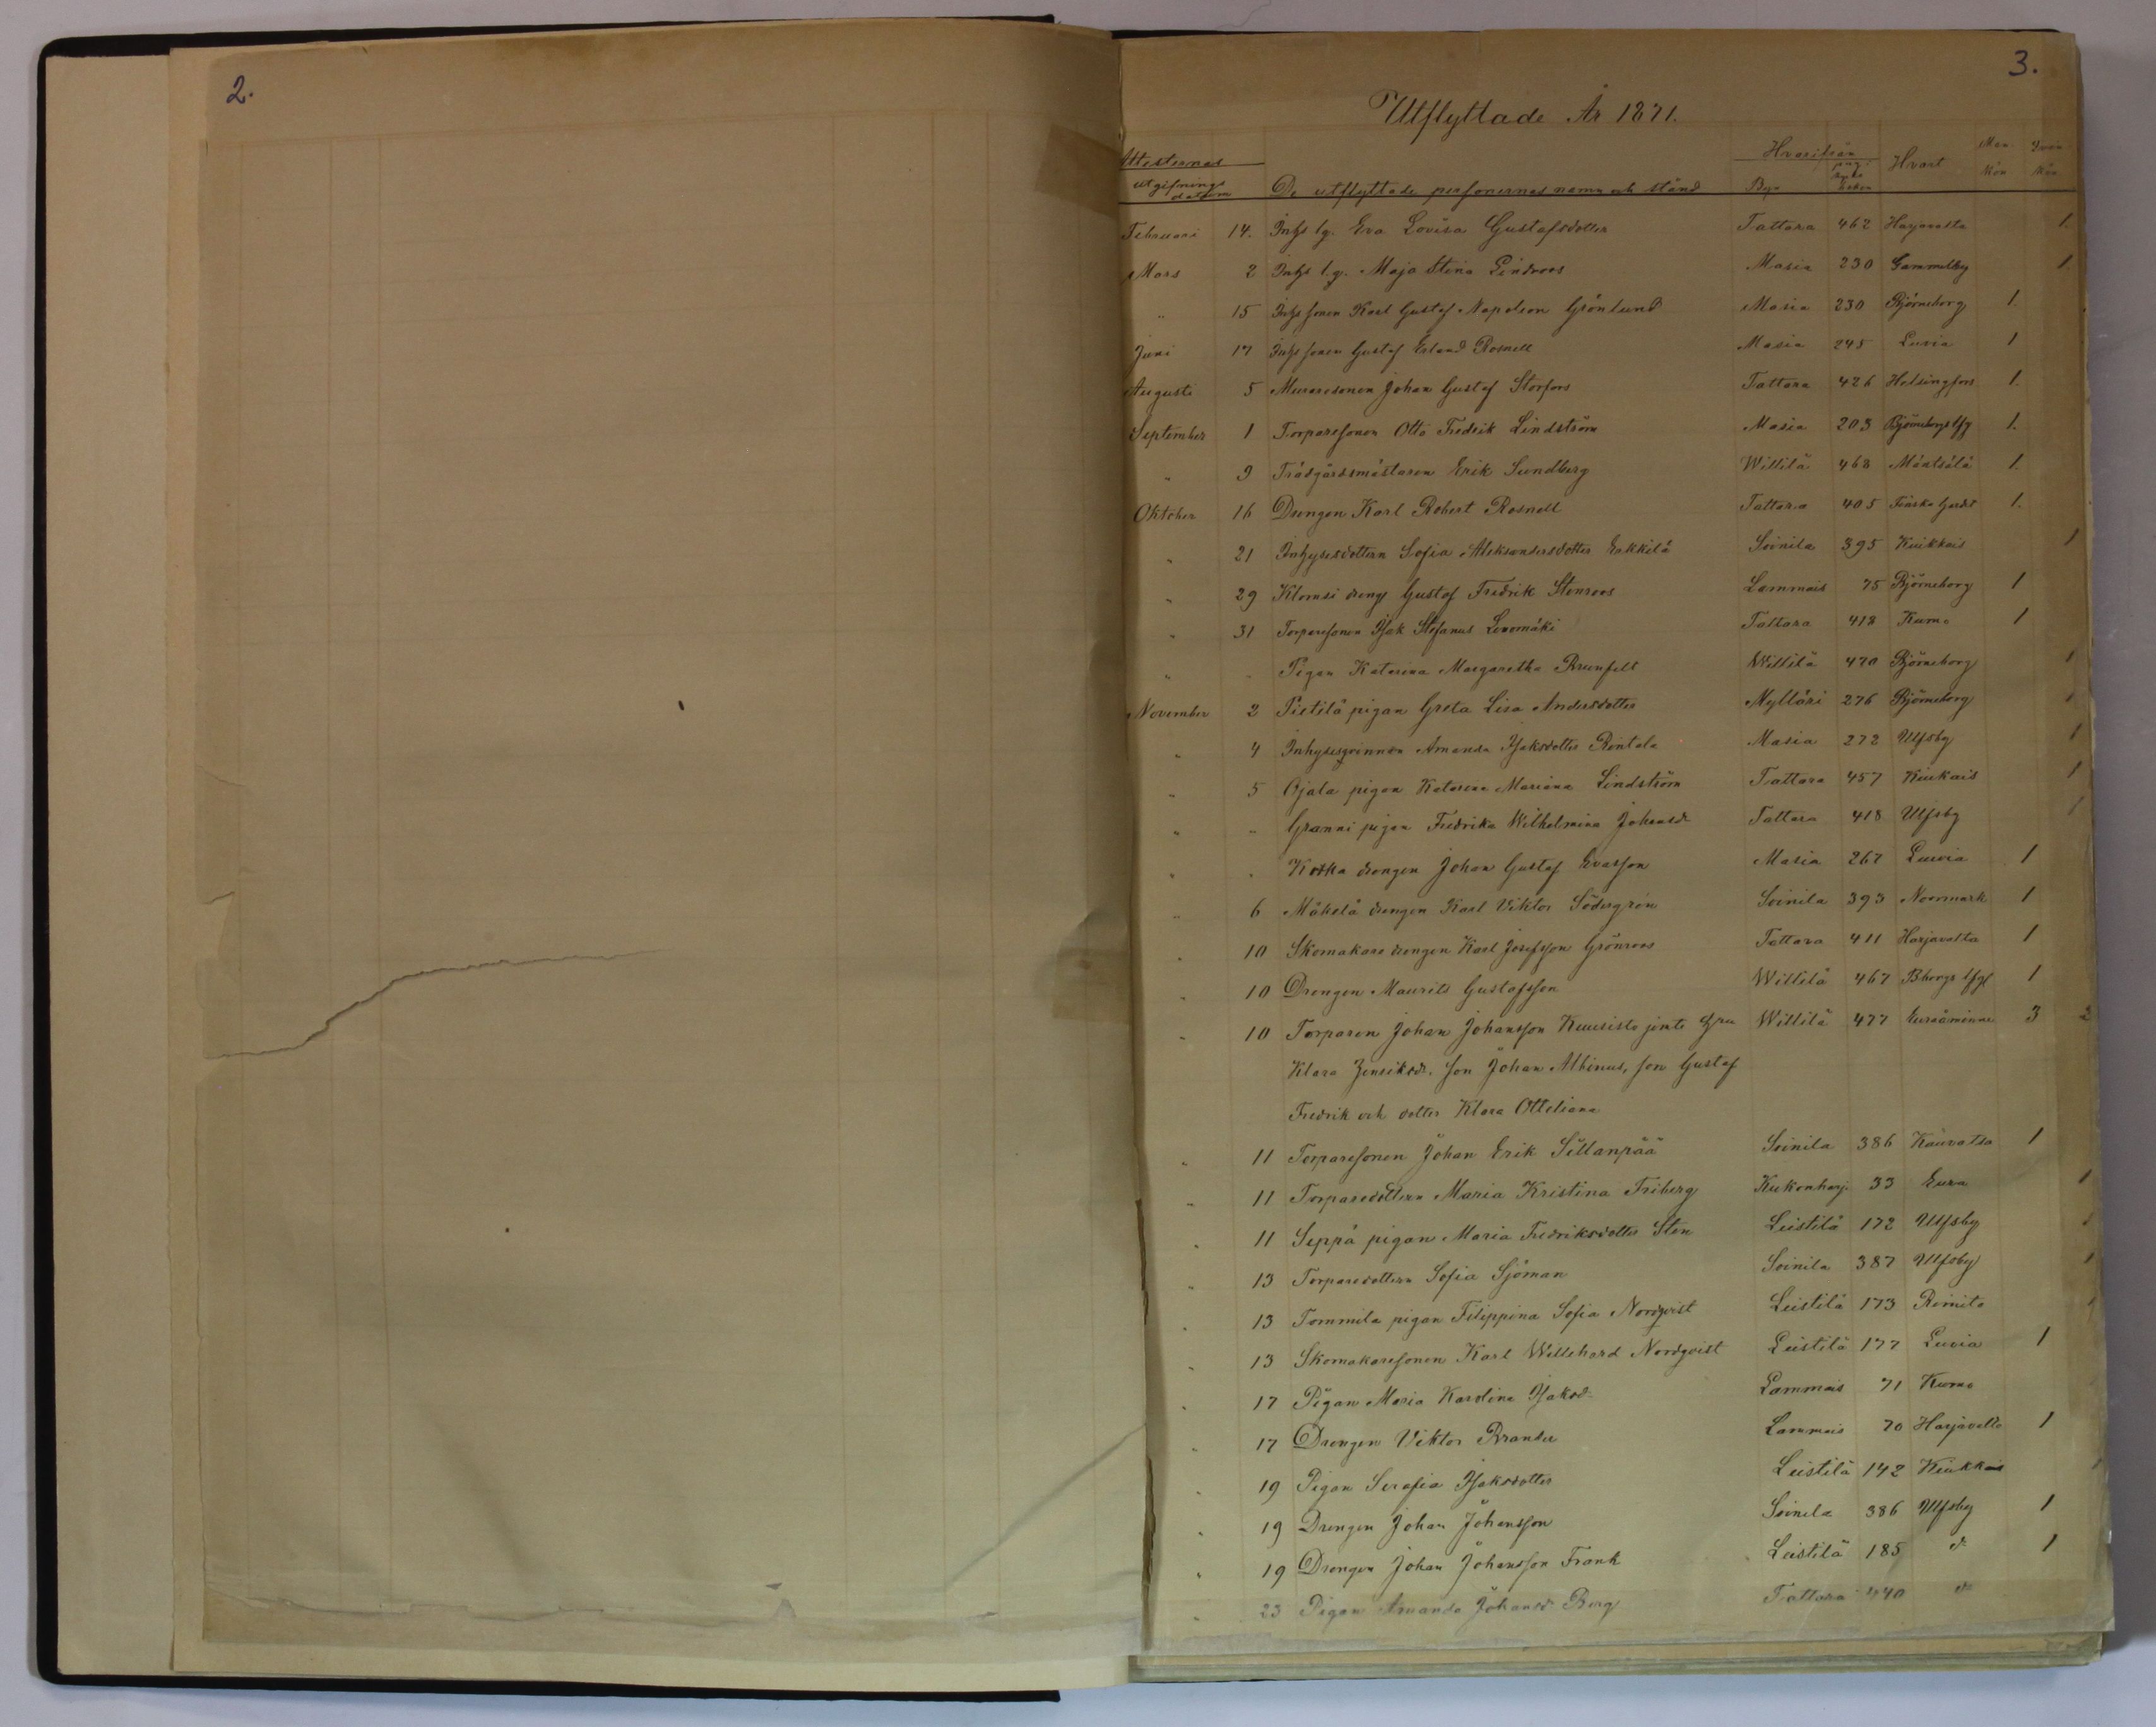 2.
3.
Utflyttade År 1871.
Attesternas Hvarifrån Hvart
utgifnings datum De utflyttade personernas namn och stånd By
Februari 14. Inhs lg. Eva Lovisa Gustafsdotter Tattara 462 Harjavalta 1.
Mars 2 Inhs lg. Maja Stina Lindroos Masia 230 Gammelby 1.
" 15 Inhs sonen Karl Gustaf Napoleon Grönlund Masia 230 Björneborg 1.
Juni 17 Inhs sonen Gustaf Erland Rosnell Masia 245 Luvia 1
Augusti 5 Muraresonen Johan Gustaf Storfors Tattara 426 Helsingfors 1.
September 1 Torparesonen Otto Fredrik Lindström Masia 203 Björneborgs lfg 1.
" 9 Trädgårdsmästaren Erik Sundberg Willilä 468 Mäntsälä 1.
Oktober 16 Drengen Karl Robert Rosnell Tattara 405 Finska Gardet 1.
" 21 Inhysesdottern Sofia Aleksandersdotter Erkkilä Soinila 395 Kiukkais 1
" 29 Klomsi dreng Gustaf Fredrik Stenroos Lammais 75 Björneborg 1
" 31 Torparesonen Isak Stefanus Levomäki Tattara 418 Kumo 1
" " Pigan Katarina Margaretha Brunfelt Willilä 470 Björneborg 1
November 2 Pietilä pigan Greta Lisa Andersdotter Mylläri 276 Björneborg 1
" 4 Inhysesqvinnan Amanda Isaksdotter Rintala Masia 272 Ulfsby 1
" 5 Ojala pigan Katarina Mariana Lindström Tattara 457 Kiukais 1
" " Granni pigan Fredrika Wilhelmina Johansd: Tattara 418 Ulfsby 1
" " Kotka drengen Johan Gustaf Evasson Masia 267 Luvia 1
" 6 Mäkelä drengen Karl Viktor Södergrén Soinila 393 Norrmark 1
" 10 Skomakare drengen Karl Josefsson Grönroos Tattara 411 Harjavalta 1
" 10 Drengen Maurits Gustafsson Willilä 467 Bborgs lfg 1
" 10 Torparen Johan Johansson Kuusisto jemte Hru Willilä 477 Euraåminne 3 2
Klara Henriksdr. son Johan Albinus, son Gustaf
Fredrik och dotter Klara Otteliana
" 11 Torparesonen Johan Erik Sillanpää Soinila 386 Kauvatsa 1
" 11 Torparedottern Maria Kristina Friberg Kukonharj. 33 Eura 1
" 11 Seppä pigan Maria Fredriksdotter Sten Leistilä 172 Ulfsby 1
" 13 Torparedottern Sofia Sjöman Soinila 387 Ulfsby 1
" 13 Tommila pigan Filippina Sofia Nordqvist Leistilä 173 Rimito 1
" 13 Skomakaresonen Karl Willehard Nordqvist Leistilä 177 Luvia 1
" 17 Pigan Maria Karolina Isaksd: Lammais 71 Kumo
" 17 Drengen Viktor Brander Lammais 70 Harjavalta 1
" 19 Pigan Serafia Isaksdotter Leistilä 142 Kiukkais 1
" 19 Drengen Johan Johansson Soinila 386 Ulfsby 1
" 19 Drengen Johan Johansson Frank Leistilä 185 d: 1
" 23 Pigan Amanda Johansd: Berg Tattara 440 d: